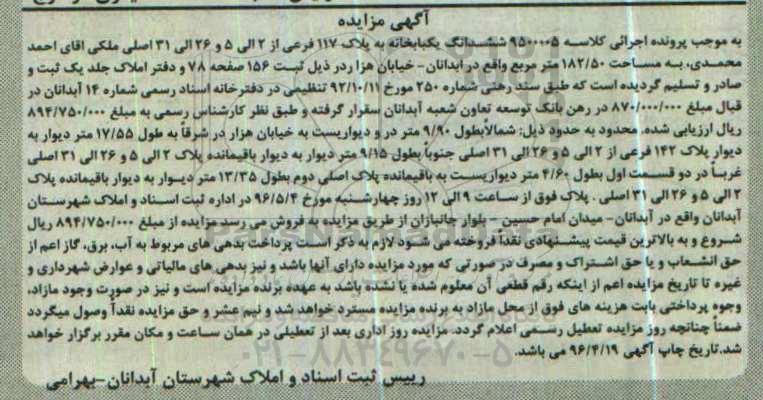 آگهی مزایده
به موجب پرونده اجرائی کلاسه ۹۵۰۰۰۰۵ ششدانگ یکبابخانه به پلاک ۱۱۷ فرعی از ۲ الی ۵ و ۲۶ الی ۳۱ اصلی ملکی اقای احمد
محمدی، به مساحت ۱۸۲/۵۰ متر مربع واقع در ابدانان- خیابان هزا ردر ذیل ثبت ۱۵۶ صفحه ۷۸ و دفتر املاک جلد یک ثبت و
صادر و تسلیم گردیده است که طبق سند رهنی شماره ۲۵۰ مورخ ۹۲/۱۰/۱۱ تنظیمی در دفترخانه اسناد رسمی شماره ۱۴ آبدانان در
قبال مبلغ ۸۷۰/۰۰۰/۰۰۰ در رهن بانک توسعه تعاون شعبه آبدانان سقرار گرفته و طبق نظر کارشناس رسمی به مبلغ ۸۹۴/۷۵۰/۰۰۰
ریال ارزیابی شده. محدود به حدود ذیل: شمالاًبطول ۹/۹۰ متر در و دیواریست به خیابان هزار در شرقاً به طول ۱۷/۵۵ متر دیوار به
دیوار پلاک ۱۴۲ فرعی از ۲ الی ۵ و ۲۶ الی ۳۱ اصلی جنوباً بطول ۹/۱۵ متر دیوار به دیوار باقیمانده پلاک ۲ الی ۵ و ۲۶ الی ۳۱ اصلی
غرباً در دو قسمت اول بطول ۴/۶۰ متر دیواریست به باقیمانده پلاک اصلی دوم بطول ۱۳/۳۵ متر دیوار به دیوار باقیمانده پلاک
۲ الی ۵ و ۲۶ الی ۳۱ اصلی . پلاک فوق از ساعت ۹ الی ۱۲ روز چهارشنبه مورخ ۹۶/۵/۴ در اداره ثبت اسناد و املاک شهرستان
آبدانان واقع در آبدانان- میدان امام حسین - بلوار جانبازان از طریق مزایده به فروش می رسد مزایده از مبلغ ۸۹۴/۷۵۰/۰۰۰ ریال
شروع و به بالاترین قیمت پیشنهادی نقداً فروخته می شود لازم به ذکر است پرداخت بدهی های مربوط به آب، برق، گاز اعم از
حق انشعاب و یا حق اشتراک و مصرف در صورتی که مورد مزایده دارای آنها باشد و نیز بدهی های مالیاتی و عوارض شهرداری و
غیره تا تاریخ مزایده اعم از اینکه رقم قطعی آن معلوم شده یا نشده باشد به عهده برنده مزایده است و نیز در صورت وجود مازاد،
وجوه پرداختی بابت هزینه های فوق از محل مازاد به برنده مزایده مسترد خواهد شد و نیم عشر و حق مزایده نقداً وصول میگردد
ضمناً چنانچه روز مزایده تعطیل رسمی اعلام گردد. مزایده روز اداری بعد از تعطیلی در همان ساعت و مکان مقرر برگزار خواهد
شد.تاریخ چاپ آگهی ۹۶/۴/۱۹ می باشد.
۰۲۱-۸۸۳۴۹۶۷۰-۵
رییس ثبت اسناد و املاک شهرستان آبدانان-بهرامی